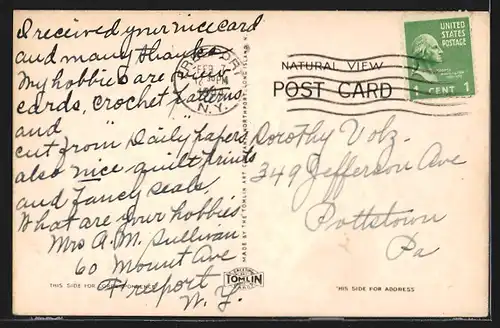 I received your nice card
and many thanks
My hobbies are view
cards, crochet patterns
and
cut from "Daily" papers
also nice quilt prints
and fancy seals.
What are your hobbies
Mrs A. M. Sullivan
60 Mount Ave
Freeport
N.Y.
THIS SIDE FOR
FREEPORT
FEB 7
PM
N.Y.
MADE BY THE TOMLIN ART CO. NORTHPORT, LONG ISLAND
TOMLIN
NATURAL VIEW
POST CARD
UNITED
STATES
POSTAGE
1 CENT 1
Dorothy Volz
349 Jefferson Ave
Pottstown
Pa
THIS SIDE FOR ADDRESS